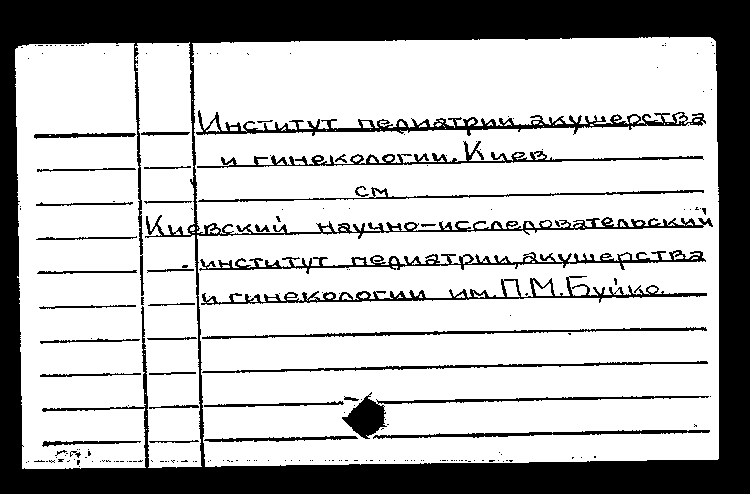 Институт педиатрии, акушерства
и гинекологии. Киев.
см
Киевский научно-исследовательский
институт педиатрии, акушерства
и гинекологии им. П.М. Буйко.